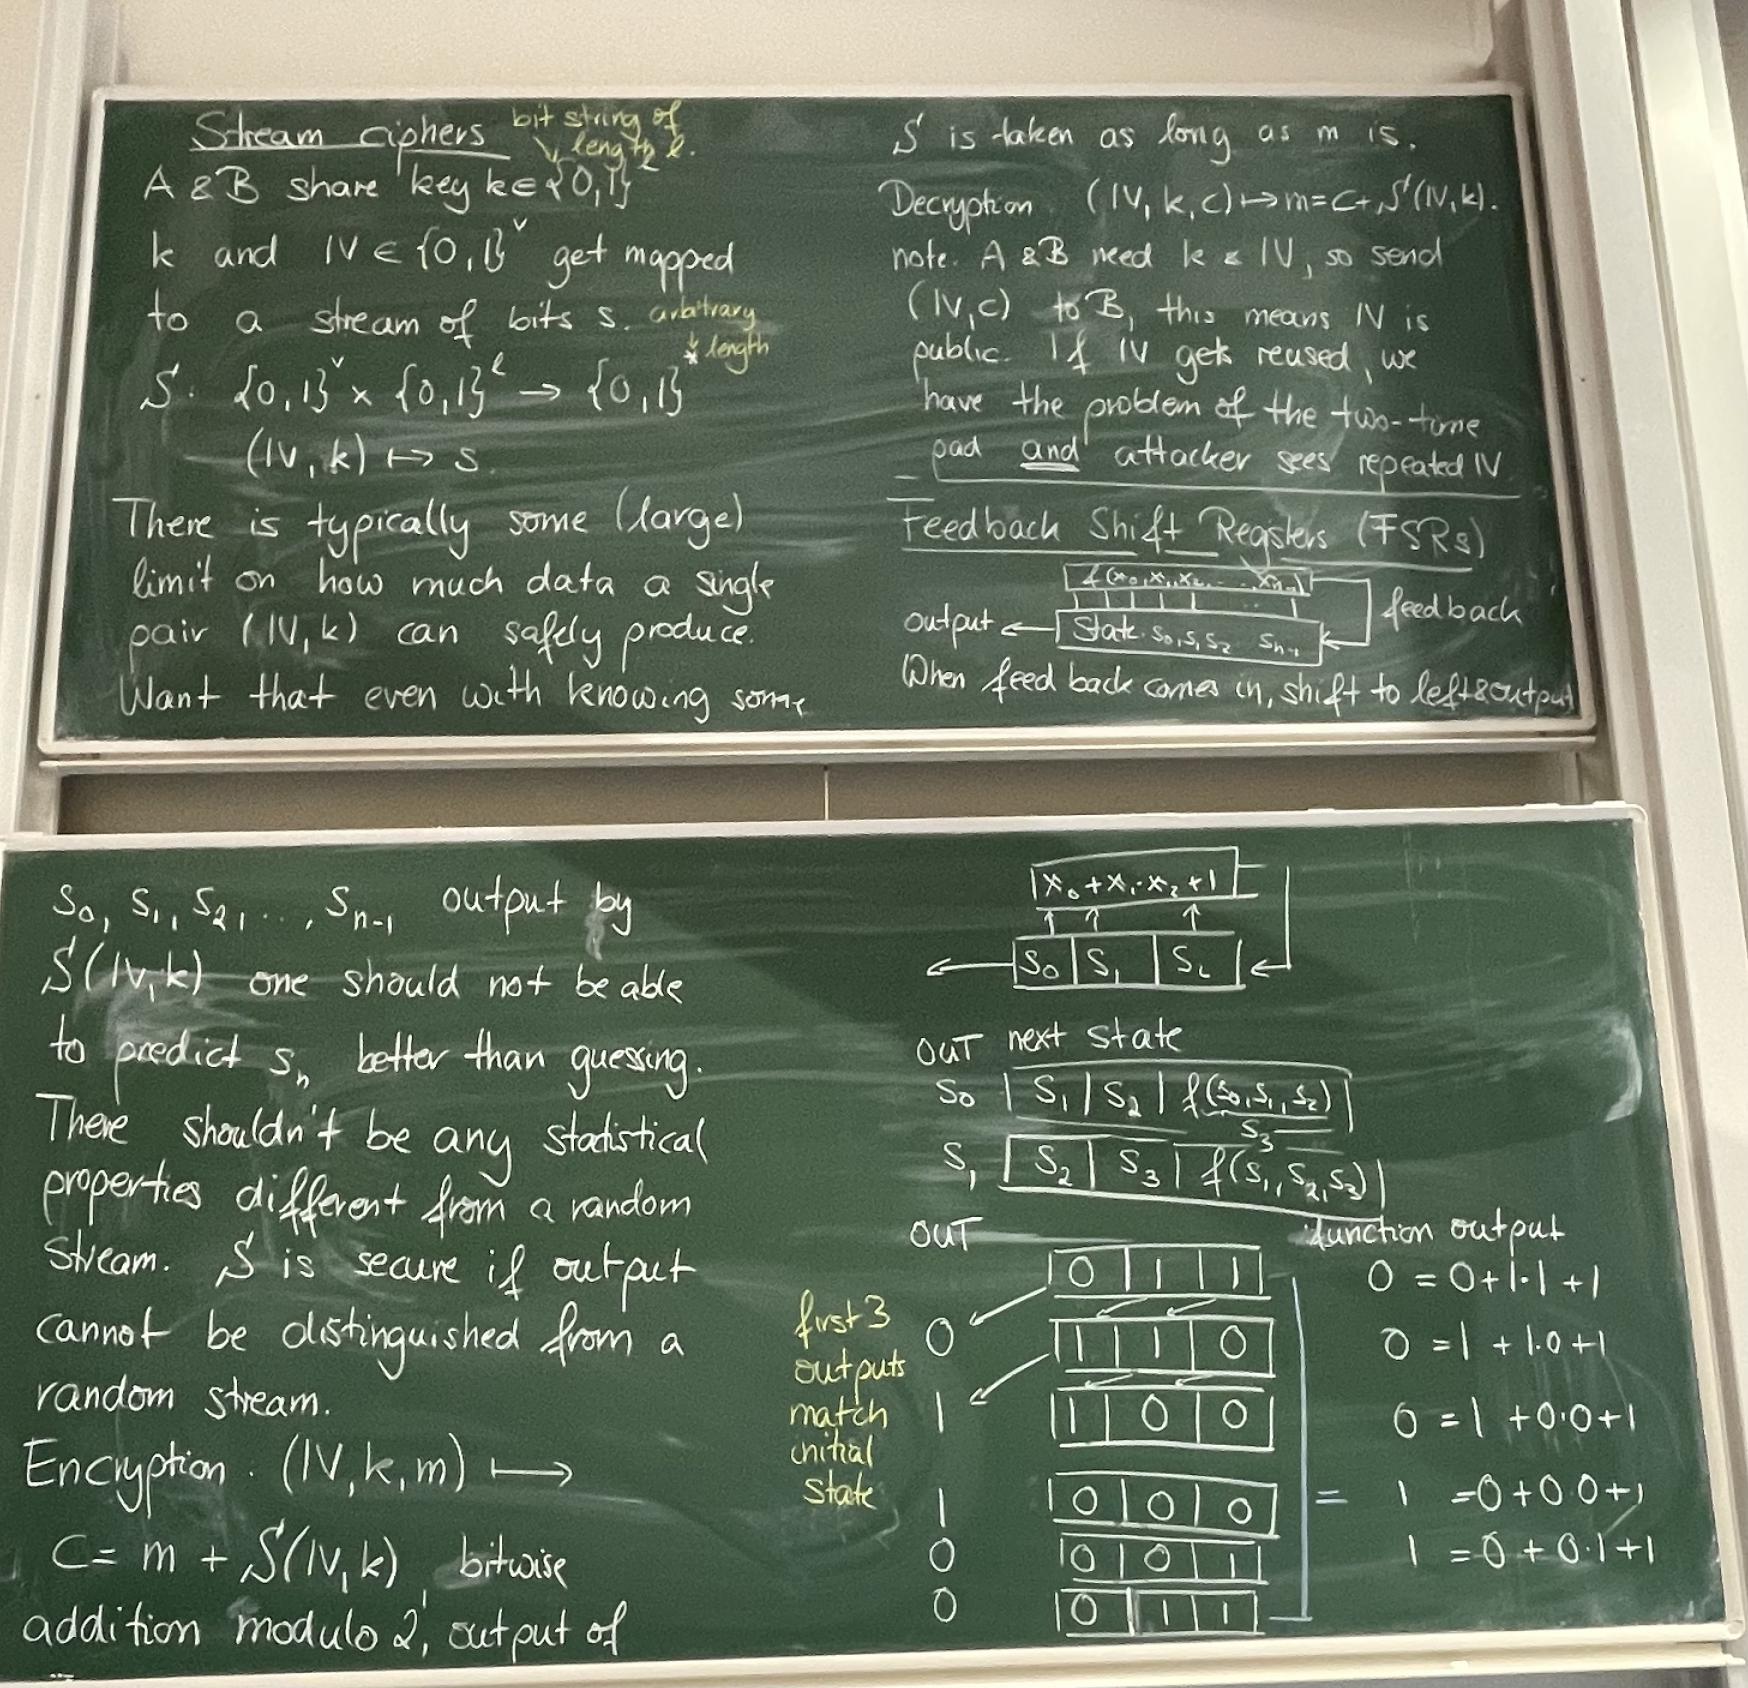 Stream ciphers bit string of
length ℓ.
A & B share key k∈{0,1}^ℓ
k and IV ∈ {0,1}^v get mapped
to a stream of bits s. arbitrary
length
S: {0,1}^v × {0,1}^ℓ → {0,1}^*
(IV, k) ↦ s.
There is typically some (large)
limit on how much data a single
pair (IV, k) can safely produce.
Want that even with knowing some
s₀, s₁, s₂, ..., sₙ₋₁ output by
S(IV,k) one should not be able
to predict sₙ better than guessing.
There shouldn't be any statistical
properties different from a random
stream. S is secure if output
cannot be distinguished from a
random stream.
Encryption: (IV,k,m) ↦
C = m + S(IV,k), bitwise
addition modulo 2, output of
S is taken as long as m is.
Decryption (IV, k, c) ↦ m=c+S(IV,k).
note. A & B need k & IV, so send
(IV,c) to B, this means IV is
public. If IV gets reused, we
have the problem of the two-time
pad and attacker sees repeated IV
Feedback Shift Registers (FSRs)
f(x₀,x₁,x₂,... xₙ₋₁)
feedback
output ← State: s₀,s₁,s₂ sₙ₋₁
When feed back comes in, shift to left & output
x₀+x₁·x₂+1
s₀ | s₁ | s₂
OUT next state
s₀ | s₁ | s₂ | f(s₀,s₁,s₂)
s₃
s₁ | s₂ | s₃ | f(s₁,s₂,s₃)
OUT function output
0 | 1 | 1 0 = 0+1·1+1
first 3
0 1 | 1 | 0 0 = 1 + 1·0+1
outputs
match
1 1 | 0 | 0 0 = 1 +0·0+1
initial
state
1 0 | 0 | 0 = 1 =0+0·0+1
0 0 | 0 | 1 1 = 0 + 0·1+1
0 0 | 1 | 1